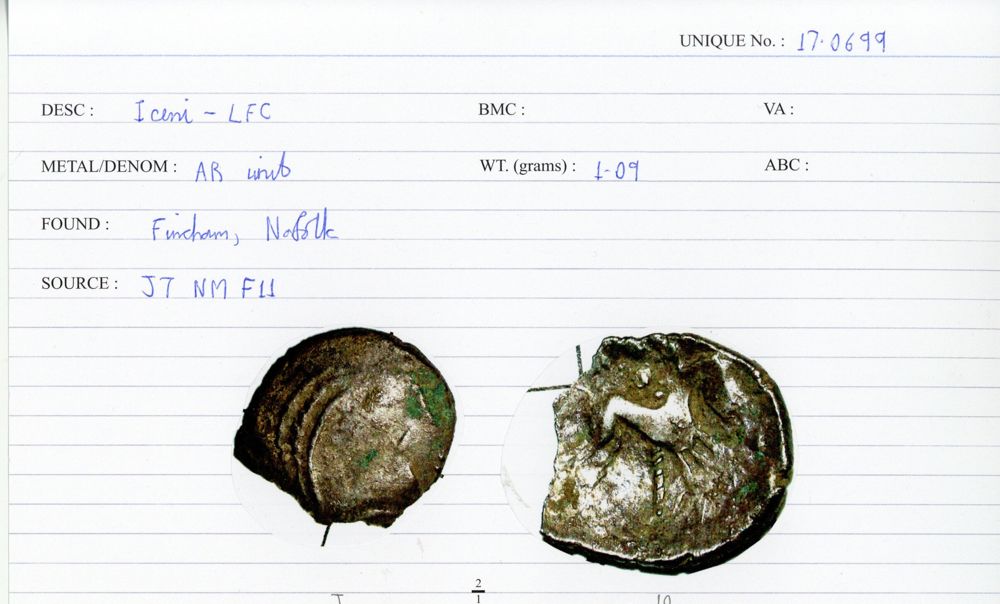 UNIQUE No. : 17.0699
DESC : Iceni - LFC BMC : VA :
METAL/DENOM : AR unit WT. (grams) : 1.09 ABC :
FOUND : Fincham, Norfolk
SOURCE : JT NM F11
2
1